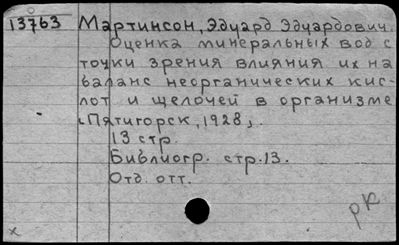 13763 Мартинсон, Эдуард Эдуардович.
Оценка минеральных вод с
точки зрения влияния их на
баланс неорганических кис-
лот и щелочей в организме
Пятигорск, 1928.
13 стр.
Библиогр. стр. 13.
Отд. отт.
рК
x